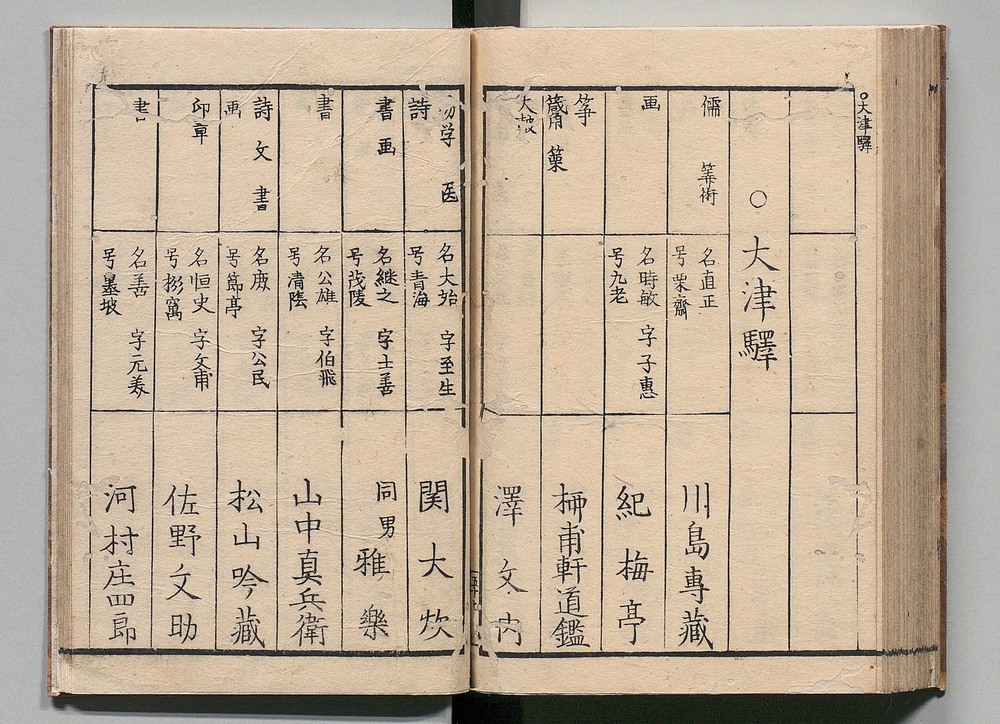 ○大津驛
○大津驛
儒 筭術
名直正
号栗齋
川島專藏
画
名時敏 字子惠
号九老
紀梅亭
箏
篳篥
柳甫軒道鑑
大皷
澤文内
学 医
詩
名大
号青海
字至生
関大炊
書画
名継之 字士善
号茂陵
同男 雅樂
書
名公雄 字伯飛
号清陰
山中真兵衛
詩文書
画
名 字公民
号節亭
松山吟藏
印章
名恒史 字文甫
号 窩
佐野文助
書
名善 字元
号墨坡
河村庄四郎